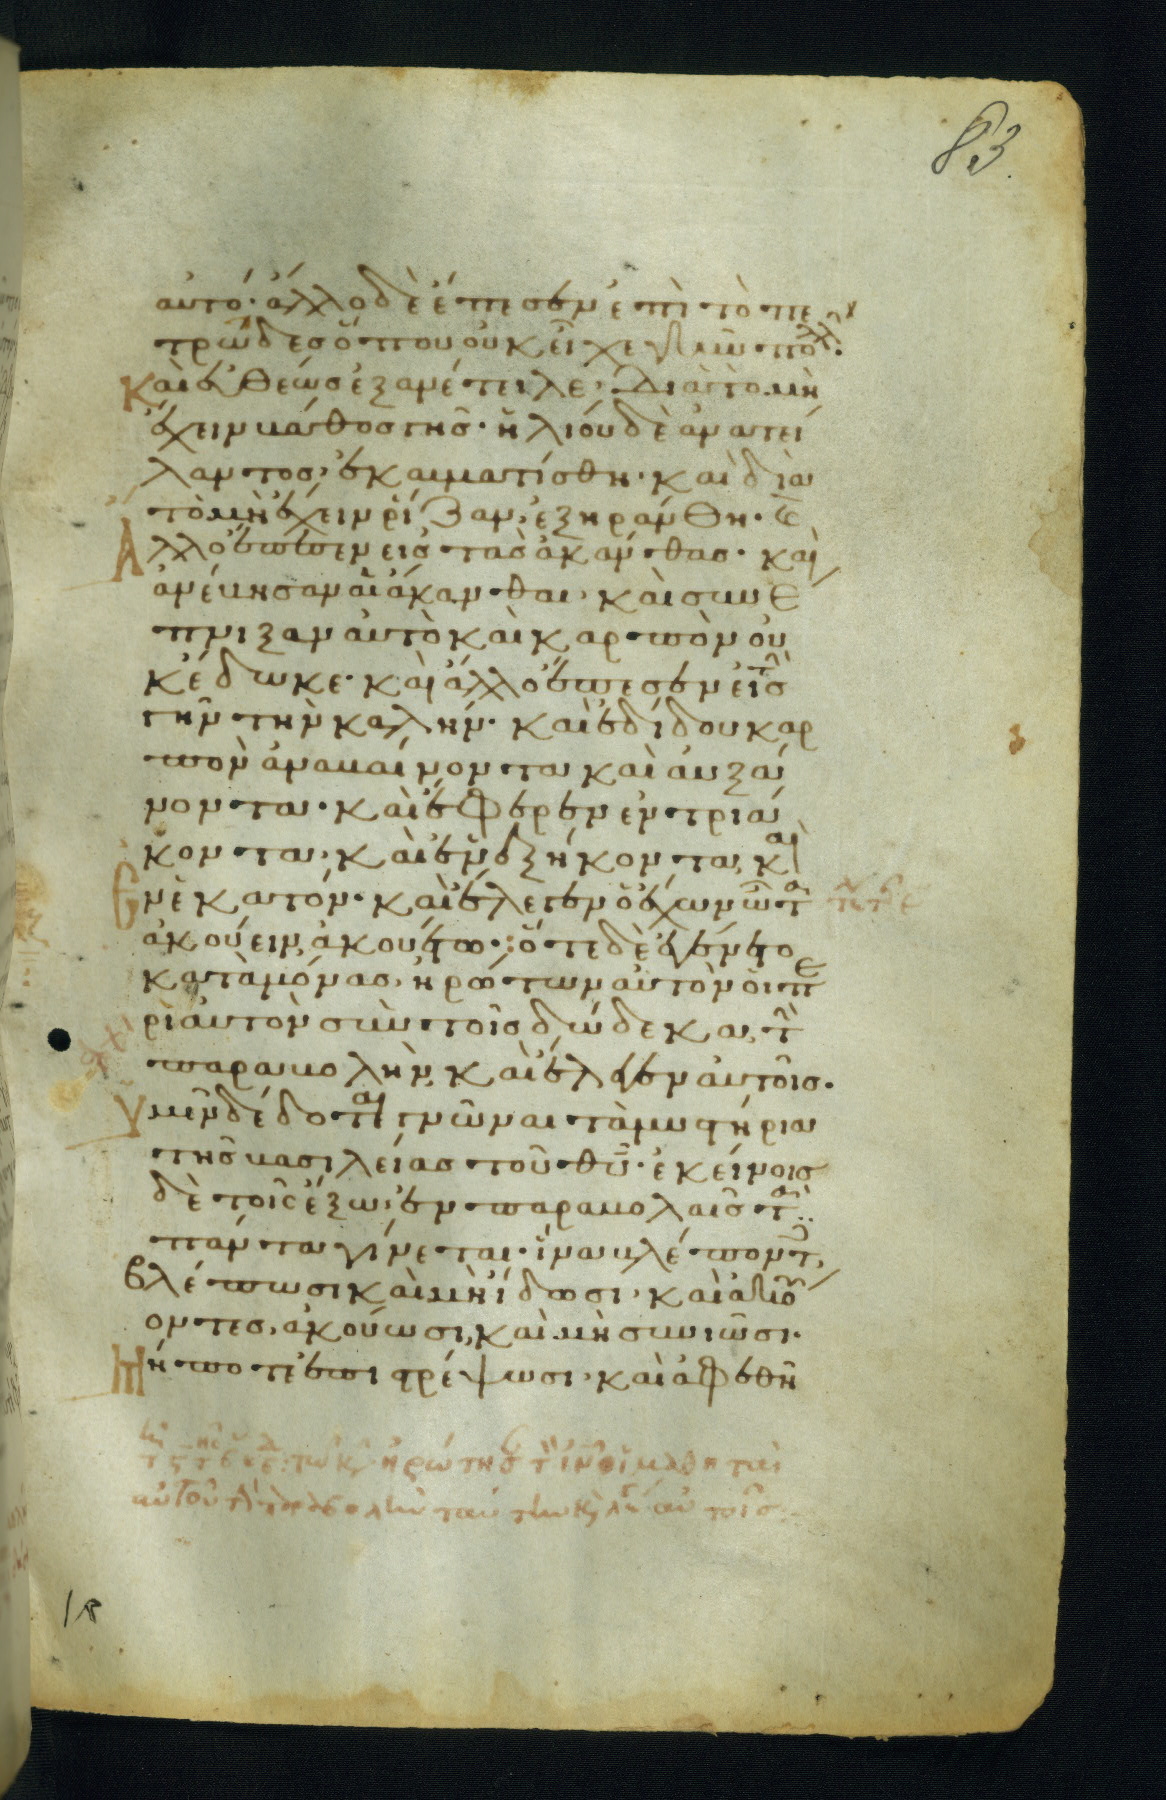 83
αὐτό· ἄλλο δὲ ἔπεσεν ἐπὶ τὸ πε
τρῶδες ὅπου οὐκ εἶχε γῆν πολλ·
Καὶ εὐθέως ἐξανέτειλε· διὰ τὸ μὴ
ἔχειν βάθος γῆς· ἡλίου δὲ ἀνατεί
λαντος, ἐκαυματίσθη· καὶ διὰ
τὸ μὴ ἔχειν ῥίζαν, ἐξηράνθη·
Ἄλλο ἔπεσεν εἰς τὰς ἀκάνθας· καὶ
ἀνέβησαν αἱ ἄκανθαι, καὶ συνέ
πνιξαν αὐτὸ καὶ καρπὸν οὐ
κ ἔδωκε· καὶ ἄλλο ἔπεσεν εἰς τ
γῆν τὴν καλήν· καὶ ἐδίδου καρ
πὸν ἀναβαίνοντα καὶ αὐξά
νοντα· καὶ ἔφερεν ἐν τριά
κοντα, καὶ ἐν ἑξήκοντα, καὶ
Ἐν ἑκατόν· καὶ ἔλεγεν ὁ ἔχων ὦτα
ἀκούειν, ἀκουέτω· ὅτε δὲ ἐγένετο
καταμόνας, ἠρώτων αὐτὸν οἱ πε
ρὶ αὐτὸν σὺν τοῖς δώδεκα, τὴν
παραβολήν, καὶ ἔλεγεν αὐτοῖς·
Ὑμῖν δέδοται γνῶναι τὰ μυστήρια
τῆς βασιλείας τοῦ θυ· ἐκείνοις
δὲ τοῖς ἔξω, ἐν παραβολαῖς τὰ
πάντα γίνεται· ἵνα βλέποντες
βλέπωσι καὶ μὴ ἴδωσι, καὶ ἀκού
οντες, ἀκούωσι, καὶ μὴ συνιῶσι·
Μήποτε ἐπιστρέψωσι, καὶ ἀφεθῇ